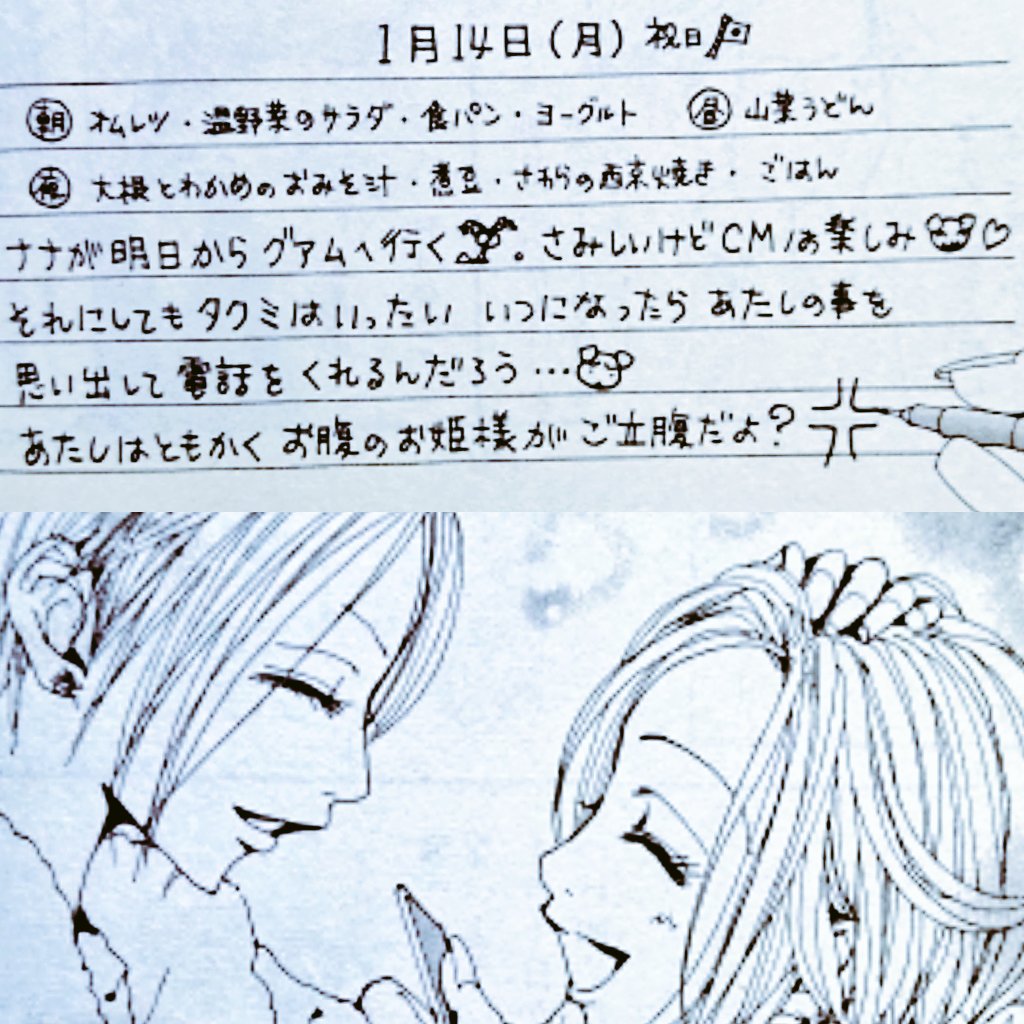 1月14日(月)祝日
朝 オムレツ・温野菜のサラダ・食パン・ヨーグルト 昼 山菜うどん
夜 大根とわかめのおみそ汁・煮豆・さわらの西京焼き・ごはん
ナナが明日からグアムへ行く。さみしいけどCMが楽しみ♡
それにしてもタクミはいったい いつになったら あたしの事を
思い出して電話をくれるんだろう…
あたしはともかく お腹のお姫様が ご立腹だよ?